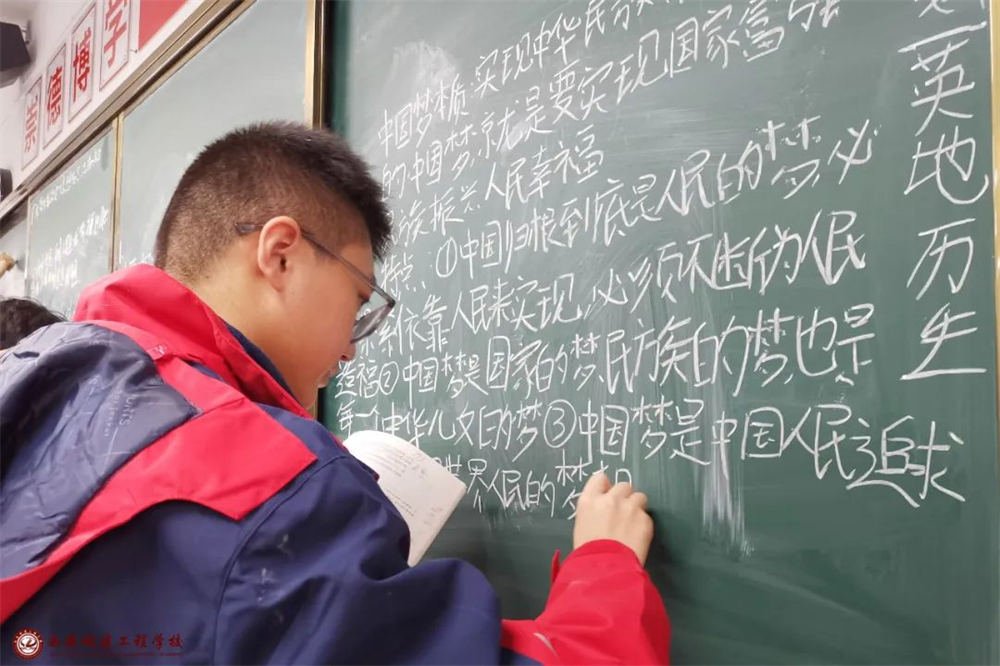 崇德博学
中国梦本质:实现中华民族
的中国梦,就是要实现国家富强
民族振兴.人民幸福
特点:①中国归根到底是人民的梦,必
须紧紧依靠人民来实现,必须不断为人民
造福②中国梦是国家的梦,民族的梦,也是
每一个中华儿女的梦③中国梦是中国人民追求
世界人民的梦相
英
地
历
生
工程学校